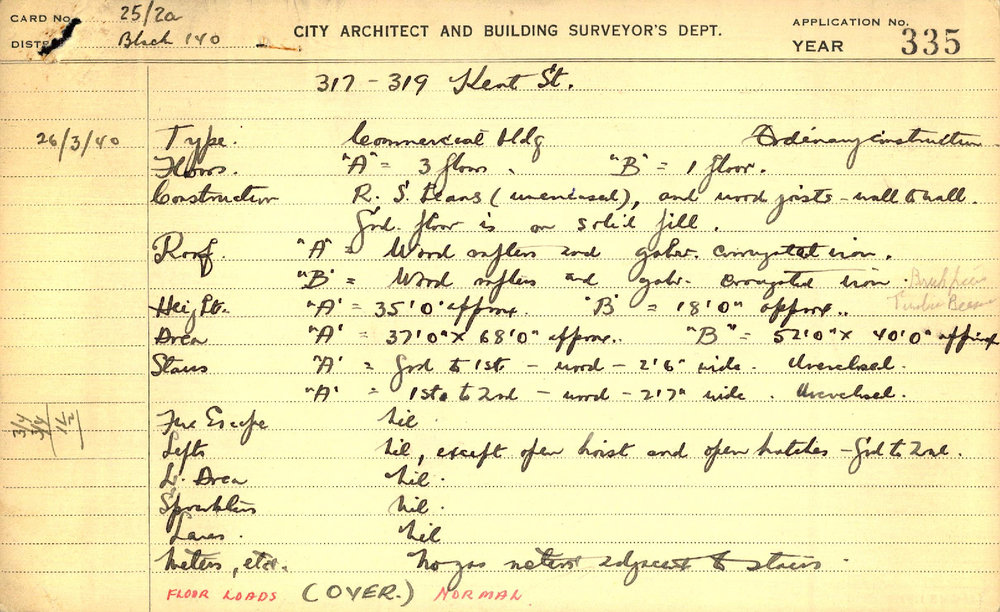 CARD No. 25/2a
DISTR Block 140
CITY ARCHITECT AND BUILDING SURVEYOR'S DEPT.
APPLICATION No.
YEAR 335
317 - 319 Kent St.
26/3/40 Type. Commercial bldg Ordinary construction
Floors. "A" = 3 floors. "B" = 1 floor.
Construction R. S. Beams (unencased), and wood joists - wall to wall.
Grd. floor is on solid fill.
Roof. "A" = Wood rafters and galv. corrugated iron.
"B" = Wood rafters and galv. corrugated iron.
Brick piers
Timber Beams
Height. "A" = 35'0" approx. "B" = 18'0" approx..
Area "A" = 37'0" x 68'0" approx.. "B" = 52'0" x 40'0" approx
Stairs "A" = Grd to 1st - wood - 2'6" wide. Unenclosed.
"A" = 1st to 2nd - wood - 2'7" wide. Unenclosed.
3/4
3/4
1 1/2
Fire Escape Nil.
Lifts Nil, except open hoist and open hatches - Grd to 2nd.
L. Area Nil.
Sprinklers Nil.
Lanes. Nil
Meters, etc. No gas meters adjacent to stairs.
FLOOR LOADS (OVER.) NORMAL